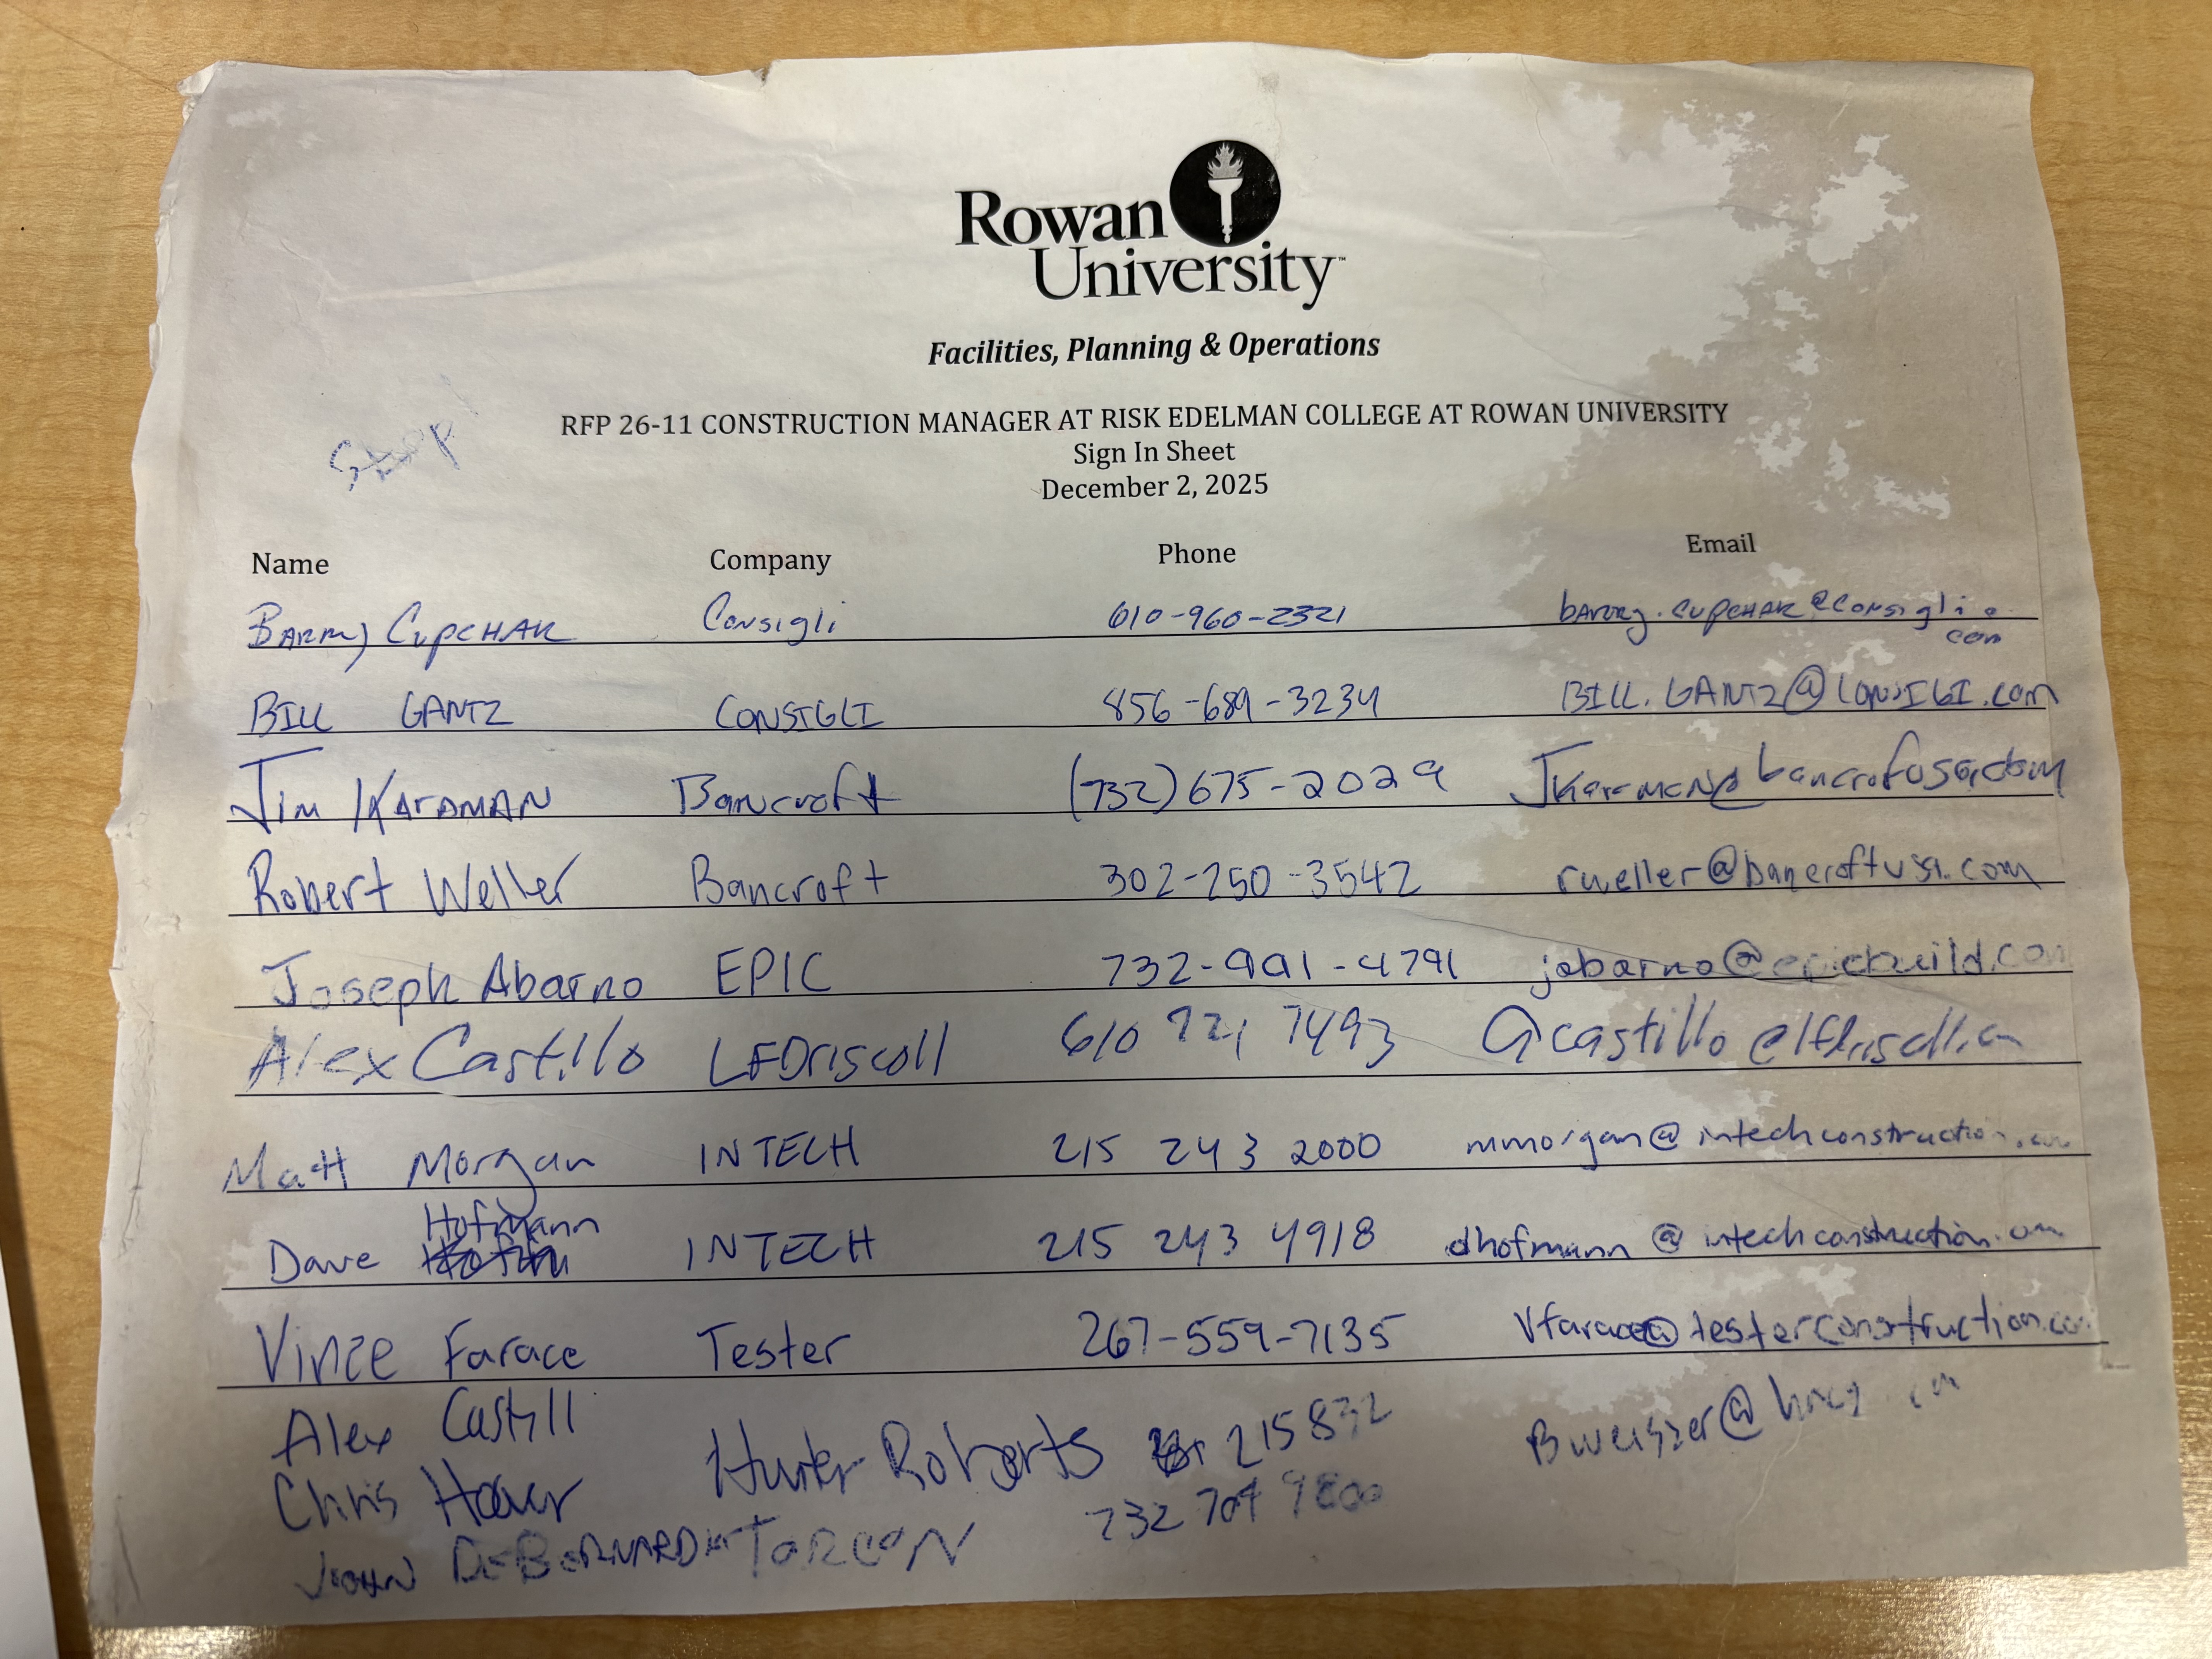 Rowan
University
Facilities, Planning & Operations
RFP 26-11 CONSTRUCTION MANAGER AT RISK EDELMAN COLLEGE AT ROWAN UNIVERSITY
Sign In Sheet
December 2, 2025
Name Company Phone Email
BARRY CUPCHAK Consigli 610-960-2321 barry.cupchak@consigli.
com
BILL GANTZ CONSIGLI 856-689-3234 BILL.GANTZ@CONSIGI.com
Jim KARAMAN Bancroft (732) 675-2029
Robert Weller Bancroft 302-250-3542 rweller@bancroftusa.com
Joseph Abarno EPIC 732-991-4791 jabarno@epicbuild.com
Alex Castillo LFDriscoll 610 721 7493
Matt Morgan INTECH 215 243 2000 mmorgan@intechconstruction.com
Hofmann
Dave INTECH 215 243 4918 dhofmann@intechconstruction.com
Vince Farace Tester 267-559-7135 vfarace@testerconstruction.com
Alex Castill
Chris Hoover Hunter Roberts 215 832
JOHN TORCON 732 704 9800